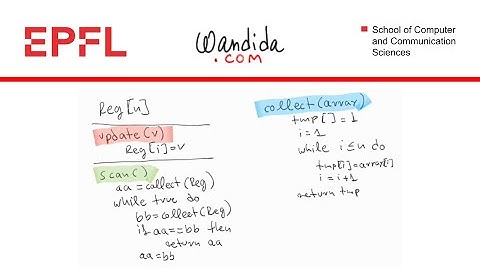 EPFL
Wandida
.com
School of Computer
and Communication
Sciences
Reg[n]
update(v)
Reg[i]=v
scan()
aa=collect(Reg)
while true do
bb=collect(Reg)
if aa==bb then
return aa
aa=bb
collect(array)
tmp[]=1
i=1
while i≤n do
tmp[i]=array[i]
i=i+1
return tmp